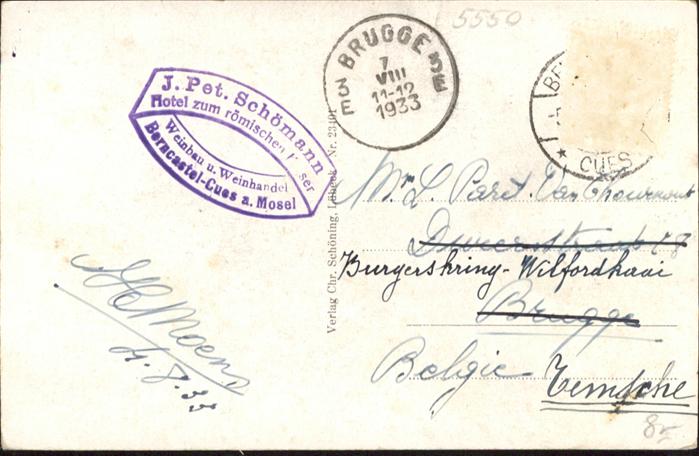 5550
BRUGGE
7
VIII
11-12
1933
3E
CUES
J. Pet. Schömann
Hotel zum römischen
Weinbau u. Weinhandel
Berncastel-Cues a. Mosel
Verlag Chr. Schöning, Lübeck Nr. 23401
Mr L. Paret. Van
Burgershring - Wilfordkaai
Brugge
België Temsche
Moens
4.8.33
85